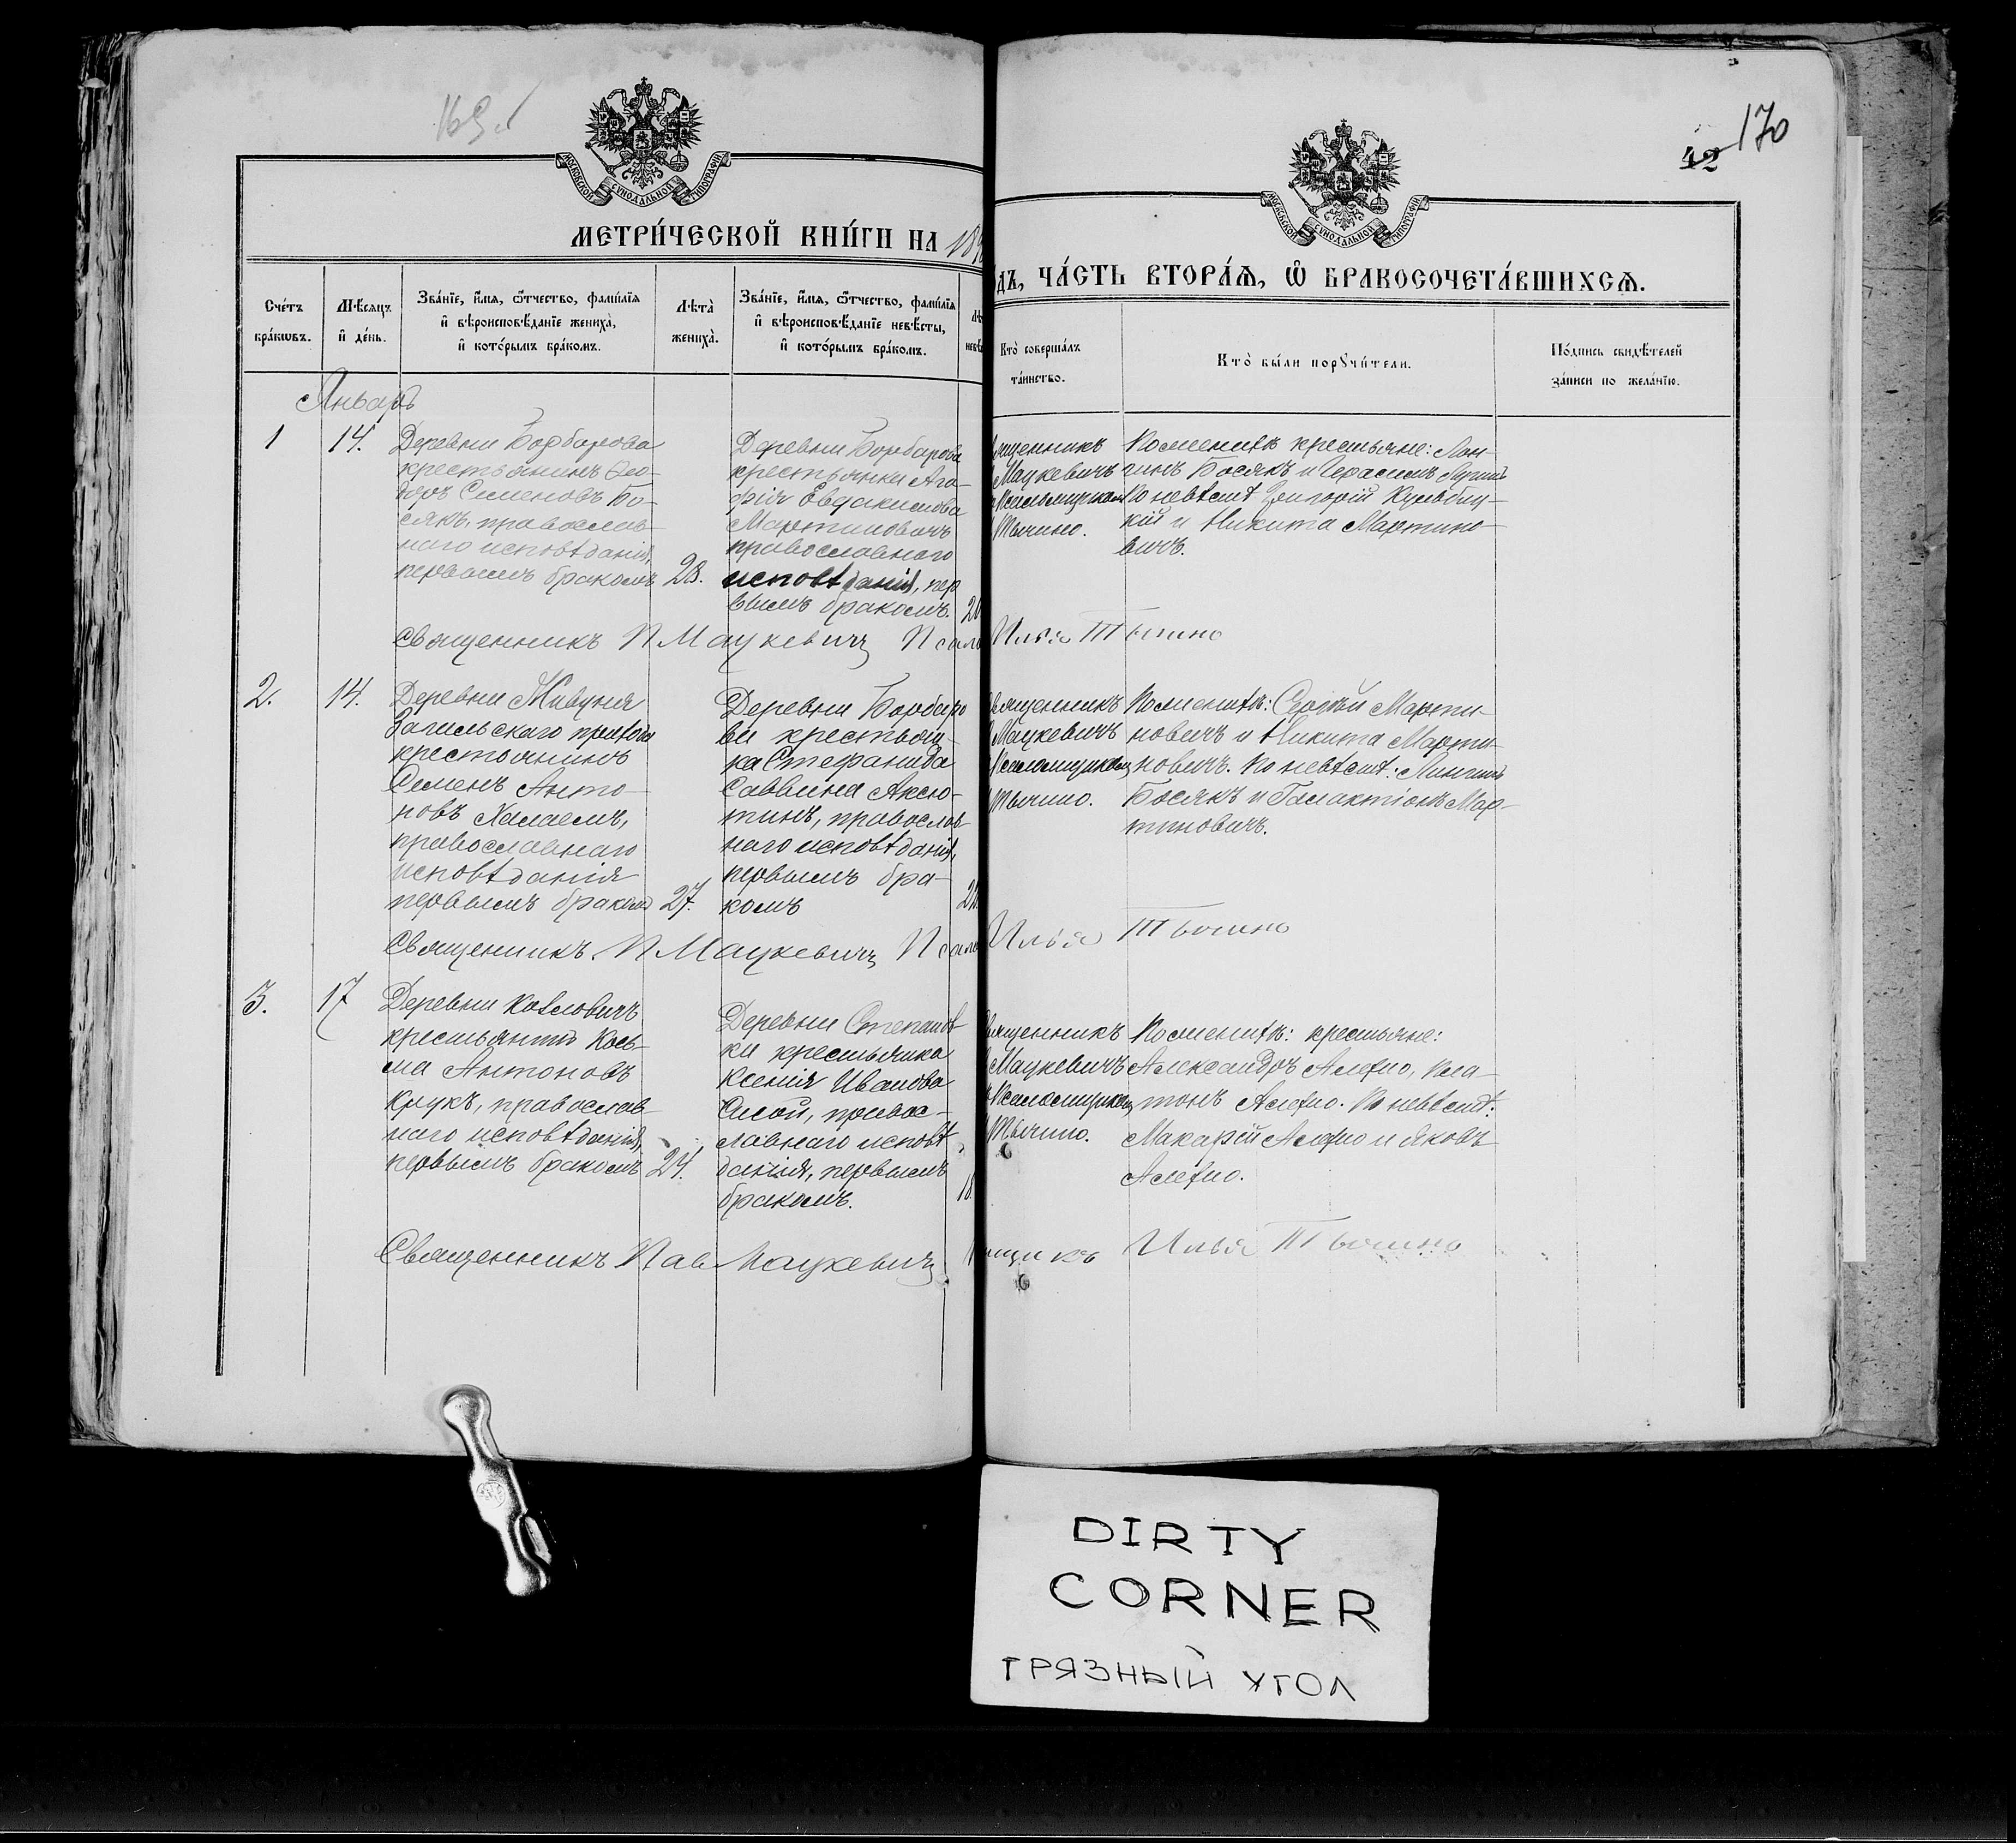 169
МОСКОВСКОЙ СУНОДАЛЬНОЙ ТИПОГРАФІИ
МЕТРИ́ЧЕСКОЙ КНИ́ГИ НА 18
Сче́тъ бра́кωвъ.
Мѣ́сяцъ и҆ де́нь.
Зва́нїе, и҆́мя, ѻ҆́тчество, фами́лїя и҆ вѣроисповѣ́данїе жениха̀, и҆ кото́рымъ бра́комъ.
Лѣта̀ жениха̀.
Зва́нїе, и҆́мя, ѻ҆́тчество, фами́лїя и҆ вѣроисповѣ́данїе невѣ́сты, и҆ кото́рымъ бра́комъ.
Январь
1
14.
Деревни Борбарова
крестьянинъ Ѳео-
доръ Семеновъ Бо-
сякъ, православ-
наго исповѣданія,
первымъ бракомъ
23.
Деревни Борбарова
крестьянка Ага-
фія Евдакимова
Мартиновичъ
православнаго
исповѣданія, пер
вымъ бракомъ.
Священникъ П Мацкевичъ
2.
14.
Деревни
прихода
крестьянинъ
Семенъ Анто-
новъ
православнаго
исповѣданія
первымъ бракомъ
27.
Деревни Борбаро
ва крестьян-
ка Стефанида
Саввина Аксю-
тинъ, православ-
наго исповѣданія,
первымъ бра-
комъ
Священникъ. П Мацкевичъ
3.
17
Деревни
крестьянинъ Кось-
ма Антоновъ
Крукъ, православ-
наго исповѣданія,
первымъ бракомъ
24.
Деревни Степанов
ки крестьянка
Ксенія Иванова
право-
славнаго исповѣ
данія, первымъ
бракомъ.
18.
Священникъ Пав Мацкевичъ
170
42
МОСКОВСКОЙ СУНОДАЛЬНОЙ ТИПОГРАФІИ
ДЪ, ЧА́СТЬ ВТОРА́Я, Ѽ БРАКОСОЧЕТА́ВШИХСЯ.
Кто̀ соверша́лъ та́инство.
Кто̀ бы́ли порꙋчи́тели.
По́дпись свидѣ́телей за́писи по жела́нїю.
Мацкевичъ
Тычино.
По женихѣ крестьяне: Лон-
гинъ Босякъ и Герасимъ
По невѣстѣ Григорій Кульбиц-
кій и Никита Мартино-
вичъ.
Илья Тычино
Священникъ
Мацкевичъ
Тычино.
По женихѣ: Сергѣй Марти-
новичъ и Никита Марти-
новичъ. По невѣстѣ: Лонгинъ
Босякъ и Галактіонъ Мар-
тиновичъ.
Илья Тычино
Священникъ
Мацкевичъ
Тычино.
По женихѣ: крестьяне:
Александръ Алехно, Пла-
тонъ Алехно. По невѣстѣ:
Макарій Алехно и Яковъ
Алехно.
Илья Тычино
DIRTY
CORNER
ГРЯЗНЫЙ УГОЛ